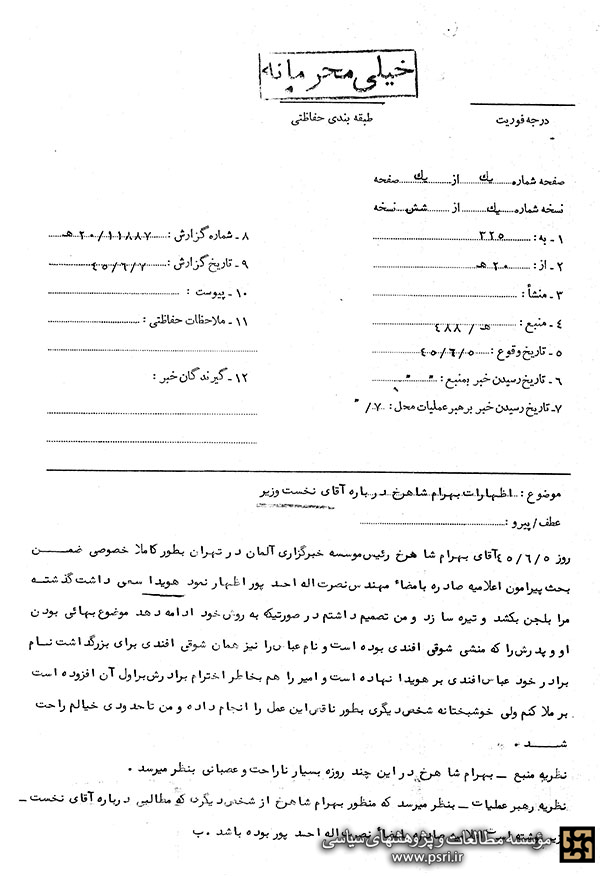 خیلی محرمانه
طبقه بندی حفاظتی
درجه فوریت
صفحه شماره یك از یك صفحه
نسخه شماره یك از شش نسخه
۱ـ به : ۳۲۵
۲ـ از : ۲۰ هـ
۳ـ منشأ :
۴ـ منبع : هـ / ۴۸۸
۵ ـ تاریخ وقوع : ۴۵/۶/۵
۶ ـ تاریخ رسیدن خبر بمنبع : " "
۷ـ تاریخ رسیدن خبر برهبر عملیات محل : ۷/ "
۸ ـ شماره گزارش : ۲۰/۱۱۸۸۷ هـ
۹ ـ تاریخ گزارش : ۴۵/۶/۷
۱۰ ـ پیوست :
۱۱ ـ ملاحظات حفاظتی :
۱۲ ـ گیرندگان خبر :
موضوع : اظهارات بهرام شاهرخ درباره آقای نخست وزیر
عطف/ پیرو :
روز ۴۵/۶/۵ آقای بهرام شا هرخ رئیس موسسه خبرگزاری آلمان در تهران بطور کاملا خصوصی ضمن
بحث پیرامون اعلامیه صادره بامضاء مهندس نصرت اله احمد پور اظهار نمود هویدا سعی داشت گذشته
مرا بلجن بکشد و تیره سا زد و من تصمیم داشتم در صورتیکه به روش خود ادامه دهد موضوع بهائی بودن
او و پدرش را که منشی شوقی افندی بوده است و نام عباس را نیز همان شوقی افندی برای بزرگداشت نام
برادر خود عباس افندی بر هویدا نهاده است و امیر را هم بخاطر احترام برادرش براول آن افزوده است
بر ملا کنم ولی خوشبختانه شخص دیگری بطور ناقص این عمل را انجام داده و من تا حدودی خیالم راحت
شد .
نظریه منبع ـ بهرام شا هرخ در این چند روزه بسیار ناراحت و عصبانی بنظر میرسد .
نظریه رهبر عملیات ـ بنظر میرسد که منظور بهرام شاهرخ از شخص دیگری که مطالبی درباره آقای نخست ـ
نصرت اله احمد پور بوده باشد . ب
مؤسسه مطالعات و پژوهشهای سیاسی
www.psri.ir